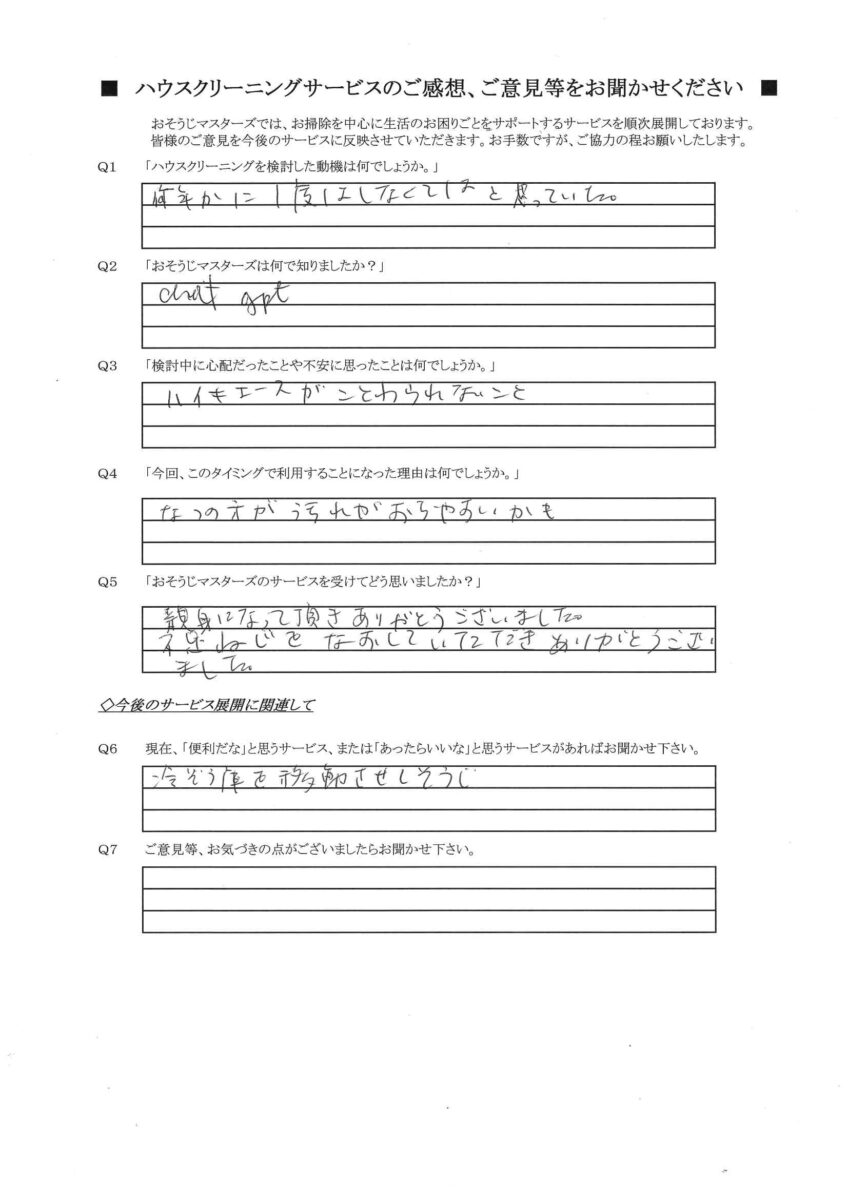 ■ ハウスクリーニングサービスのご感想、ご意見等をお聞かせください ■
おそうじマスターズでは、お掃除を中心に生活のお困りごとをサポートするサービスを順次展開しております。
皆様のご意見を今後のサービスに反映させていただきます。お手数ですが、ご協力の程お願いしたします。
Q1 「ハウスクリーニングを検討した動機は何でしょうか。」
何年かに1度はしなくてはと思っていた。
Q2 「おそうじマスターズは何で知りましたか？」
chat gpt
Q3 「検討中に心配だったことや不安に思ったことは何でしょうか。」
ハイキエースがことわられないこと
Q4 「今回、このタイミングで利用することになった理由は何でしょうか。」
なつの方が汚れがおちやすいかも
Q5 「おそうじマスターズのサービスを受けてどう思いましたか？」
親身になって頂きありがとうございました。
ねじをなおしていただきありがとうござい
ました。
◇今後のサービス展開に関連して
Q6 現在、「便利だな」と思うサービス、または「あったらいいな」と思うサービスがあればお聞かせ下さい。
冷ぞう庫を移動させしそうじ
Q7 ご意見等、お気づきの点がございましたらお聞かせ下さい。